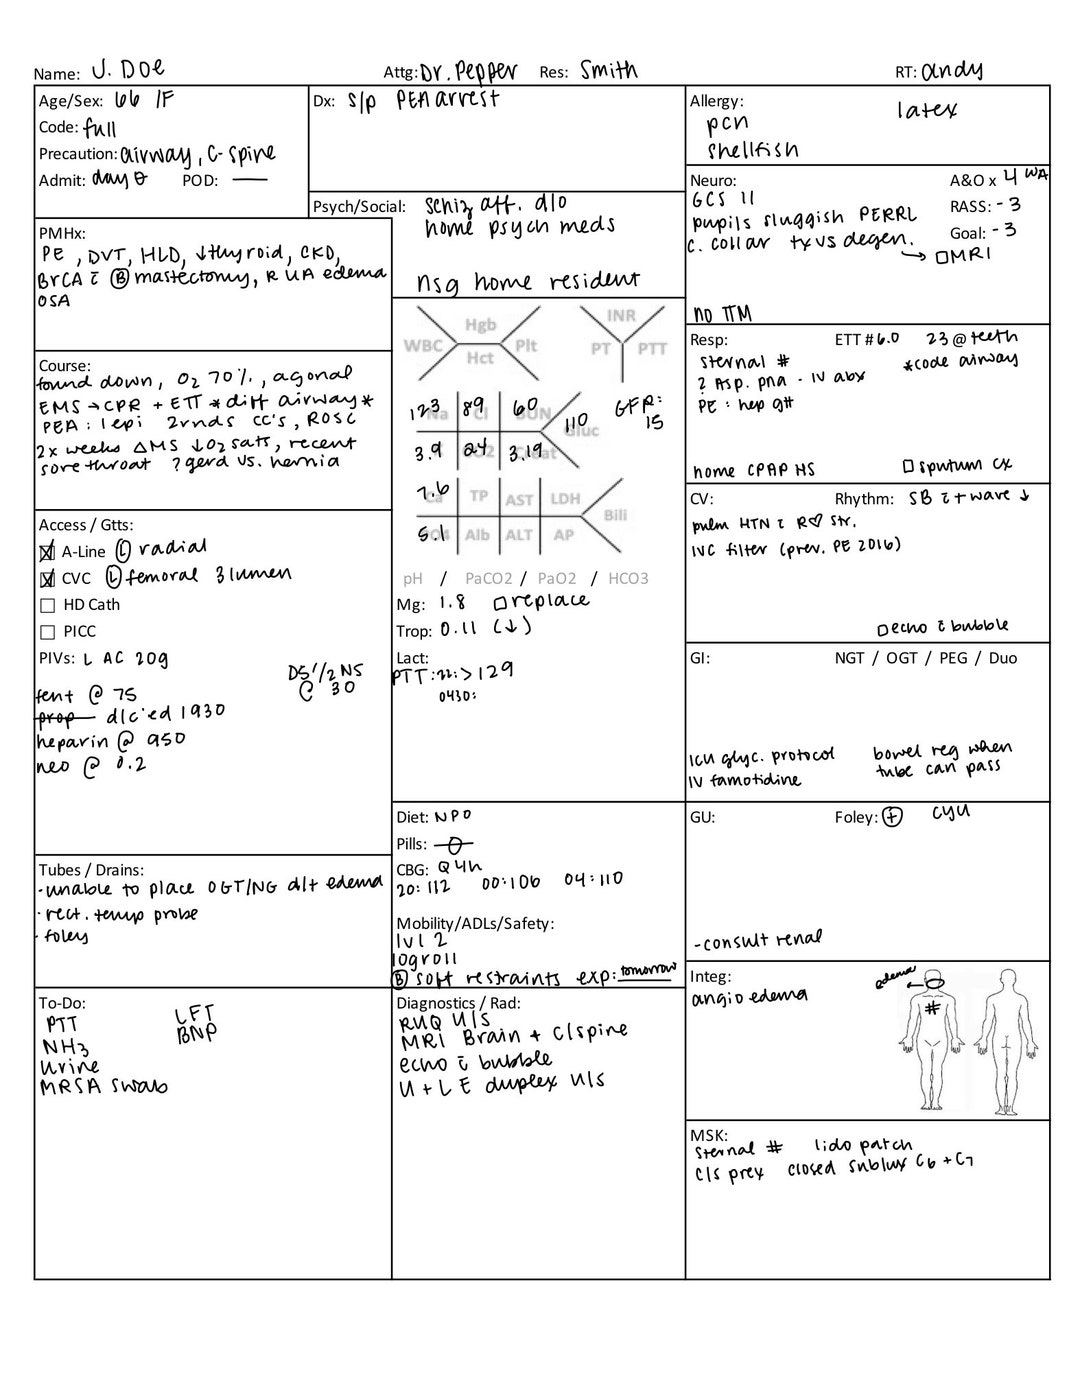 Name: J. Doe
Attg: Dr. Pepper Res: Smith
RT: andy
Age/Sex: 66 / F
Code: full
Precaution: airway, C-spine
Admit: day 0 POD: —
Dx: s/p PEA arrest
Psych/Social: schiz aff. d/o
home psych meds
nsg home resident
Allergy:
pcn latex
shellfish
PMHx:
PE, DVT, HLD, ↓thyroid, CKD,
BrCA c̄ Ⓑ mastectomy, R UA edema
OSA
Neuro: A&O x 4 WA
GCS 11 RASS: -3
pupils sluggish PERRL Goal: -3
c. collar tx vs degen.
→ □MRI
no TTM
Course:
found down, O2 70%, agonal
EMS → CPR + ETT *diff airway*
PEA: 1 epi 2rnds CC's, ROSC
2x weeks ΔMS ↓O2 sats, recent
sore throat ?gerd vs. hernia
WBC Hgb Hct Plt
INR PT PTT
Na 123 Cl 89 BUN 60 Gluc 110 GFR: 15
3.9 CO2 24 Creat 3.19
Ca 7.6 TP AST LDH Bili
PO4 5.1 Alb ALT AP
pH / PaCO2 / PaO2 / HCO3
Mg: 1.8 □replace
Trop: 0.11 (↓)
Lact:
PTT: 22: >129
0430:
Resp: ETT #6.0 23@teeth
sternal # *code airway
? Asp. pna - IV abx
PE: hep gtt
home CPAP HS □sputum cx
Access / Gtts:
☒ A-Line Ⓛ radial
☒ CVC Ⓛ femoral 3 lumen
□ HD Cath
□ PICC
PIVs: L AC 20g
D5 1/2 NS
@ 30
fent @ 75
prop d/c'ed 1930
heparin @ 950
neo @ 0.2
CV: Rhythm: SB c̄ t wave ↓
pulm HTN c̄ R♡ str.
IVC filter (prev. PE 2016)
□echo c̄ bubble
GI: NGT / OGT / PEG / Duo
ICU glyc. protocol bowel reg when
IV famotidine tube can pass
Diet: NPO
Pills: 0
CBG: Q4h
20: 112 00: 106 04: 110
Mobility/ADLs/Safety:
lvl 2
logroll
Ⓑ soft restraints exp: tomorrow
GU: Foley: ⊕ CYU
-consult renal
Tubes / Drains:
-unable to place OGT/NG d/t edema
·rect. temp probe
·foley
Integ:
angioedema
edema
#
To-Do:
PTT LFT
NH3 BNP
Urine
MRSA swab
Diagnostics / Rad:
RUQ U/S
MRI Brain + C/spine
echo c̄ bubble
U + L E duplex U/S
MSK:
sternal # lido patch
C/S prex closed sublux C6 + C7